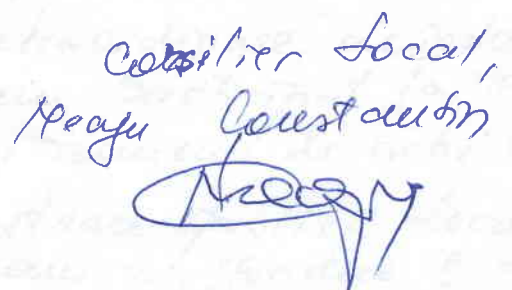 Consilier local,
Neagu Constantin
Neagu